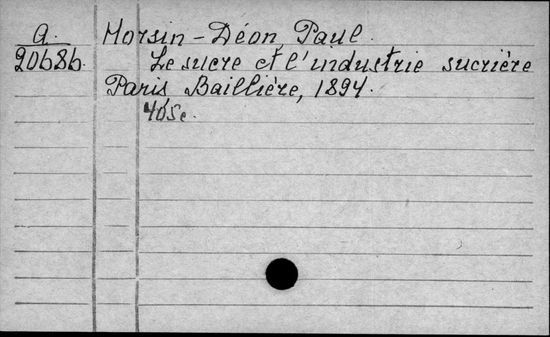 a. Horsin-Déon, Paul.
20686. Le sucre et l'industrie sucrière
Paris Baillière, 1894.
405c.